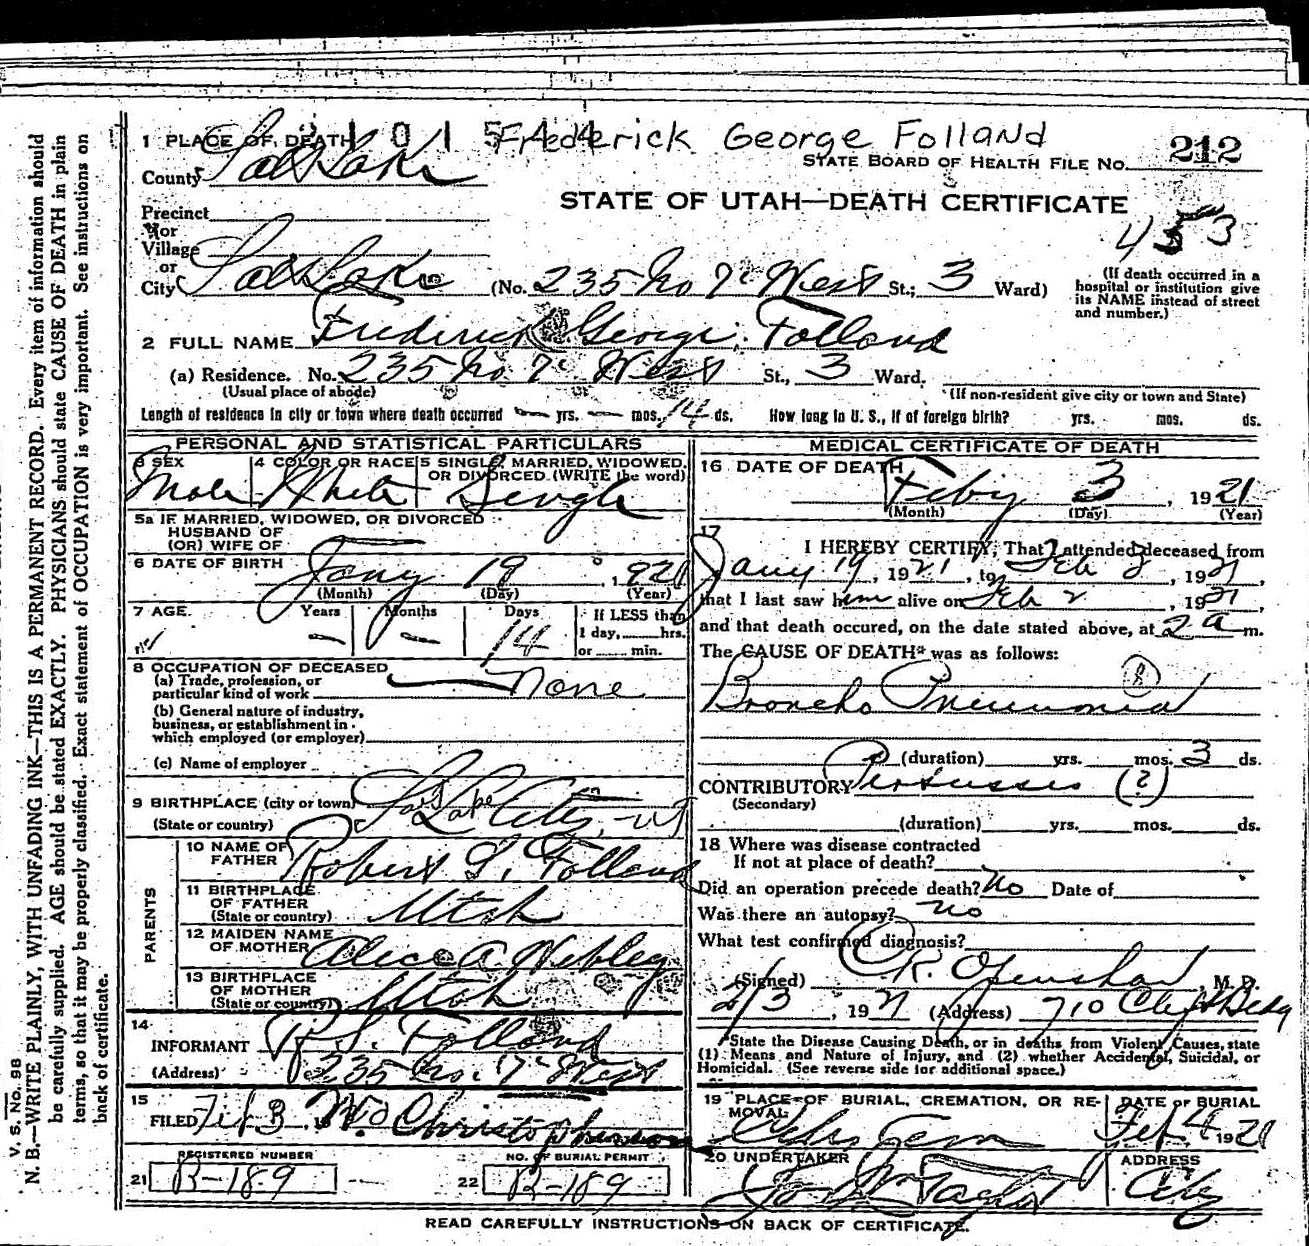 Frederick George Folland
1 PLACE OF DEATH
STATE BOARD OF HEALTH FILE No. 212
County Salt Lake
STATE OF UTAH—DEATH CERTIFICATE
453
Precinct
or
Village
or
City Salt Lake (No. 235 No 7" West St.; 3 Ward)
(If death occurred in a
hospital or institution give
its NAME instead of street
and number.)
2 FULL NAME Frederick George Folland
(a) Residence. No. 235 No 7" West St., 3 Ward.
(Usual place of abode) (If non-resident give city or town and State)
Length of residence in city or town where death occurred — yrs. — mos. 14 ds. How long in U. S., if of foreign birth? yrs. mos. ds.
PERSONAL AND STATISTICAL PARTICULARS
3 SEX 4 COLOR OR RACE 5 SINGLE, MARRIED, WIDOWED,
OR DIVORCED (WRITE the word)
Male White Single
5a IF MARRIED, WIDOWED, OR DIVORCED
HUSBAND OF
(OR) WIFE OF
6 DATE OF BIRTH Jany 19, 1921
(Month) (Day) (Year)
7 AGE. Years Months Days If LESS than
— — 14 1 day, hrs.
or min.
8 OCCUPATION OF DECEASED
(a) Trade, profession, or
particular kind of work None
(b) General nature of industry,
business, or establishment in
which employed (or employer)
(c) Name of employer
9 BIRTHPLACE (city or town) Salt Lake City, Ut
(State or country)
PARENTS
10 NAME OF
FATHER Robert S. Folland
11 BIRTHPLACE
OF FATHER
(State or country) Utah
12 MAIDEN NAME
OF MOTHER Alice A Nebley
13 BIRTHPLACE
OF MOTHER
(State or country) Utah
14
INFORMANT R. S. Folland
(Address) 235 No. 7" West
15
FILED Feb 3 W. Christopherson
REGISTERED NUMBER NO. OF BURIAL PERMIT
21 B-189 22 B-189
MEDICAL CERTIFICATE OF DEATH
16 DATE OF DEATH
Feby 3, 1921
(Month) (Day) (Year)
17
I HEREBY CERTIFY, That I attended deceased from
Jany 19, 1921, to Feb 3, 1921,
that I last saw him alive on Feb 2, 1921
and that death occured, on the date stated above, at 2 a m.
The CAUSE OF DEATH* was as follows:
Broncho Pneumonia
(duration) yrs. mos. 3 ds.
CONTRIBUTORY Pertussis (?)
(Secondary)
(duration) yrs. mos. ds.
18 Where was disease contracted
If not at place of death?
Did an operation precede death? No Date of
Was there an autopsy? no
What test confirmed diagnosis?
(Signed) C. R. Openshaw, M. D.
2/3, 1921 (Address) 710 Clift Bldg
*State the Disease Causing Death, or in deaths from Violent Causes, state
(1) Means and Nature of Injury, and (2) whether Accidental, Suicidal, or
Homicidal. (See reverse side for additional space.)
19 PLACE OF BURIAL, CREMATION, OR RE- DATE OF BURIAL
MOVAL
City Cem Feb 4 1921
20 UNDERTAKER ADDRESS
Jos. Wm Taylor City
READ CAREFULLY INSTRUCTIONS ON BACK OF CERTIFICATE.
V. S. No. 98
N. B.—WRITE PLAINLY, WITH UNFADING INK—THIS IS A PERMANENT RECORD. Every item of information should
be carefully supplied. AGE should be stated EXACTLY. PHYSICIANS should state CAUSE OF DEATH in plain
terms, so that it may be properly classified. Exact statement of OCCUPATION is very important. See instructions on
back of certificate.